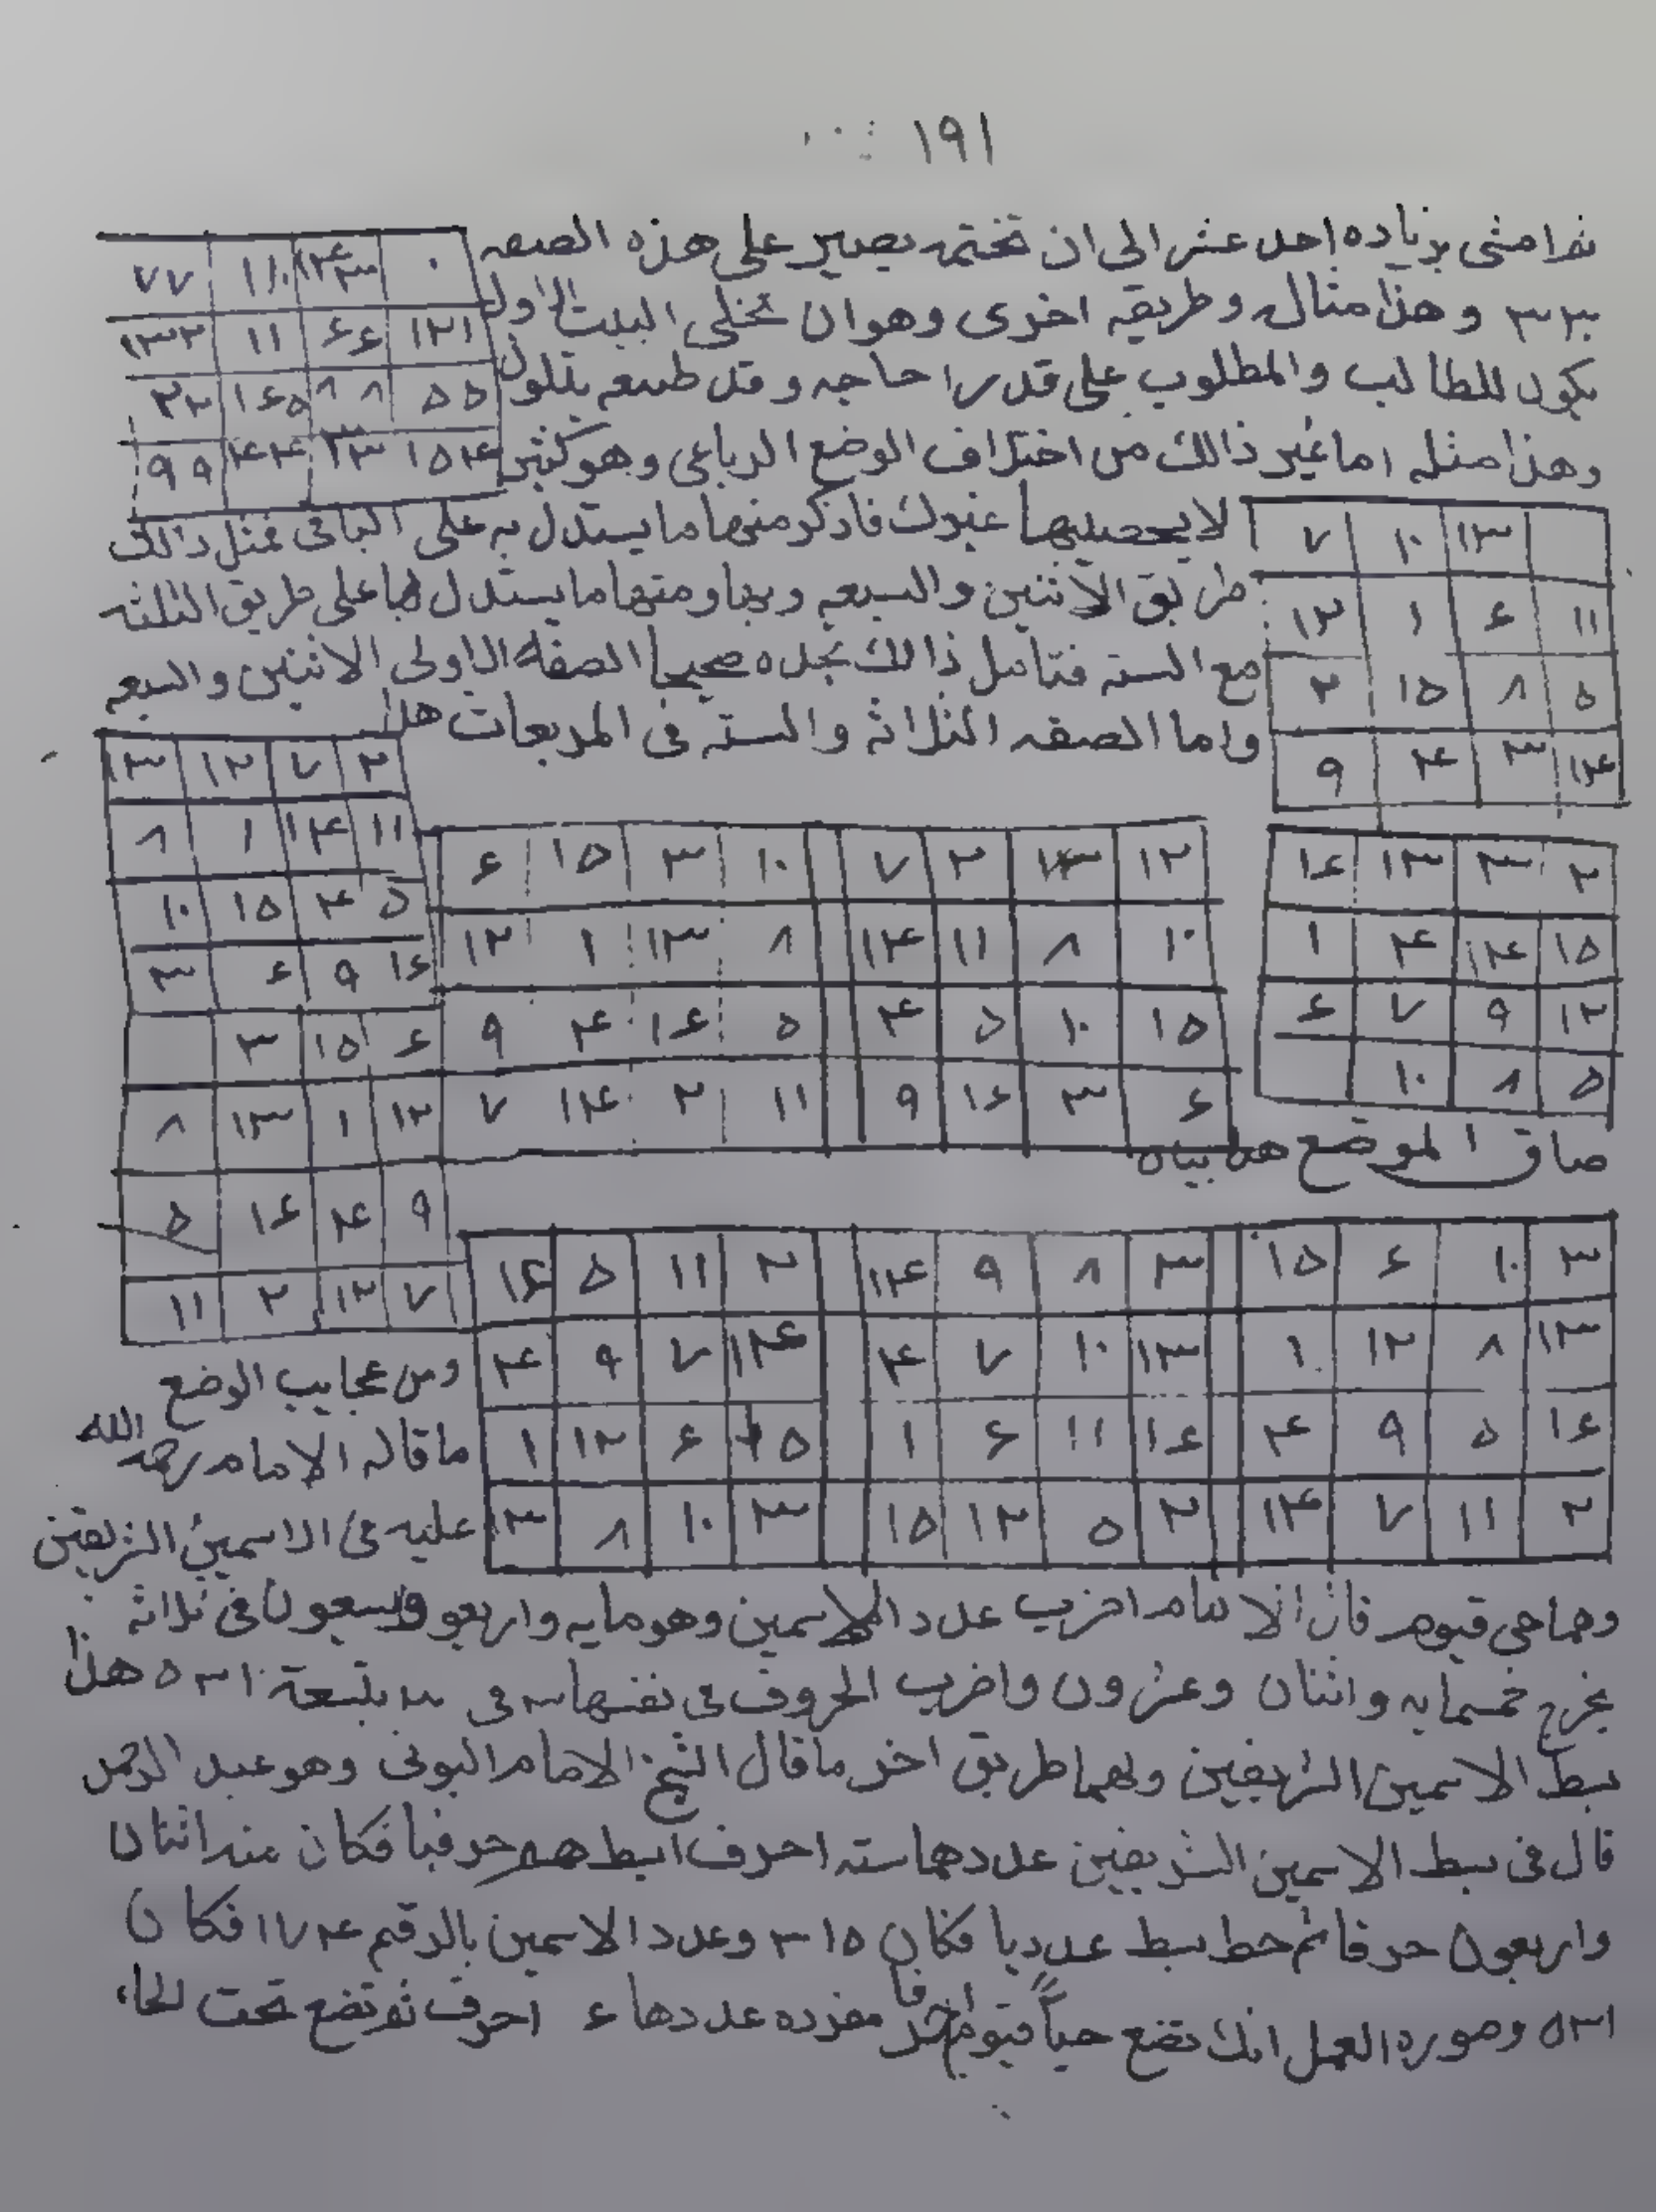 ١٩١
ثم امشى بزياده احد عشر الى ان تختمه يصير على هذه الصفه
٣٣ وهذا مثال وطريقه اخرى وهو ان تخلى البيت الاول
يكون للطالب والمطلوب على قدر حاجه وقد
وهذا مثله اما غير ذالك من اختلاف الوضع الرباعى وهو كثير
٧٧ | ١١٠ | ١٤٣ | ٠
١٣٢ | ١١ | ٦٦ | ١٢١
٢٢ | ١٦٥ | ٨٨ | ٥٥
٩٩ | ٤٤ | ٣٣ | ١٥٤
لا يحصيها غيرك فاذكر منها ما يستدل به على الباقى فمثل ذالك
طريق الاثنين والسبعه ومنها ما يستدل بها على طريق الثلثه
مع السته فتامل ذالك تجده صحيحا الصفه الاولى الاثنين والسبعه
واما الصفه الثلاثه والسته فى المربعات هذا
٧ | ١٠ | ١٣
١٢ | ١ | ٤ | ١١
٢ | ١٥ | ٨ | ٥
٩ | ٤ | ٣ | ١٤
١٣ | ١٢ | ٧ | ٢
٨ | ١ | ١٤ | ١١
١٠ | ١٥ | ٤ | ٥
٣ | ٦ | ٩ | ١٦
٣ | ١٥ | ٦
٨ | ١٣ | ١ | ١٢
٥ | ١٦ | ٤ | ٩
١١ | ٢ | ١٢ | ٧
٦ | ١٥ | ٣ | ١٠
١٢ | ١ | ١٣ | ٨
٩ | ٤ | ١٦ | ٥
٧ | ١٤ | ٢ | ١١
٧ | ٢ | ١٣ | ١٢
١٤ | ١١ | ٨ | ١٠
٤ | ٥ | ١٠ | ١٥
٩ | ١٦ | ٣ | ٦
١٦ | ١٣ | ٣ | ٢
١ | ٤ | ١٤ | ١٥
٦ | ٧ | ٩ | ١٢
١٠ | ٨ | ٥
ضاق الموضع هذا بيانه
١٦ | ٥ | ١١ | ٢
٤ | ٩ | ٧ | ١٤
١ | ١٢ | ٦ | ١٥
١٣ | ٨ | ١٠ | ٣
١٤ | ٩ | ٨ | ٣
٤ | ٧ | ١٠ | ١٣
١ | ٦ | ١١ | ١٦
١٥ | ١٢ | ٥ | ٢
١٥ | ٦ | ١٠ | ٣
١ | ١٢ | ٨ | ١٣
٤ | ٩ | ٥ | ١٦
١٤ | ٧ | ١١ | ٢
ومن عجايب الوضع
ما قاله الامام رحمه الله
عليه فى الاسمين الشريفين
وهما حى قيوم قال الامام اضرب عدد الاسمين وهو مايه واربعو وسبعون فى ثلاثه
يخرج خمسمايه واثنان وعشرون واضرب الحروف فى نفسها ٣ فى ٣ بتسعة ٥٣١ هذا
بسط الاسمين الشريفين ولهما طريق اخر ما قال الشيخ الامام البونى وهو عبد الرحمن
قال فى بسط الاسمين الشريفين عددهما سته احرف ابسطهم حرفيا فكان منه اثنان
واربعون حرفا ثم حط بسط عدديا فكان ٣١٥ وعدد الاسمين بالرقم ١٧٤ فكان
٥٣١ وصوره العمل انك تضع حياً قيوم احرفا مفرده عددها ٦ احرف ثم تضع تحت الحاء